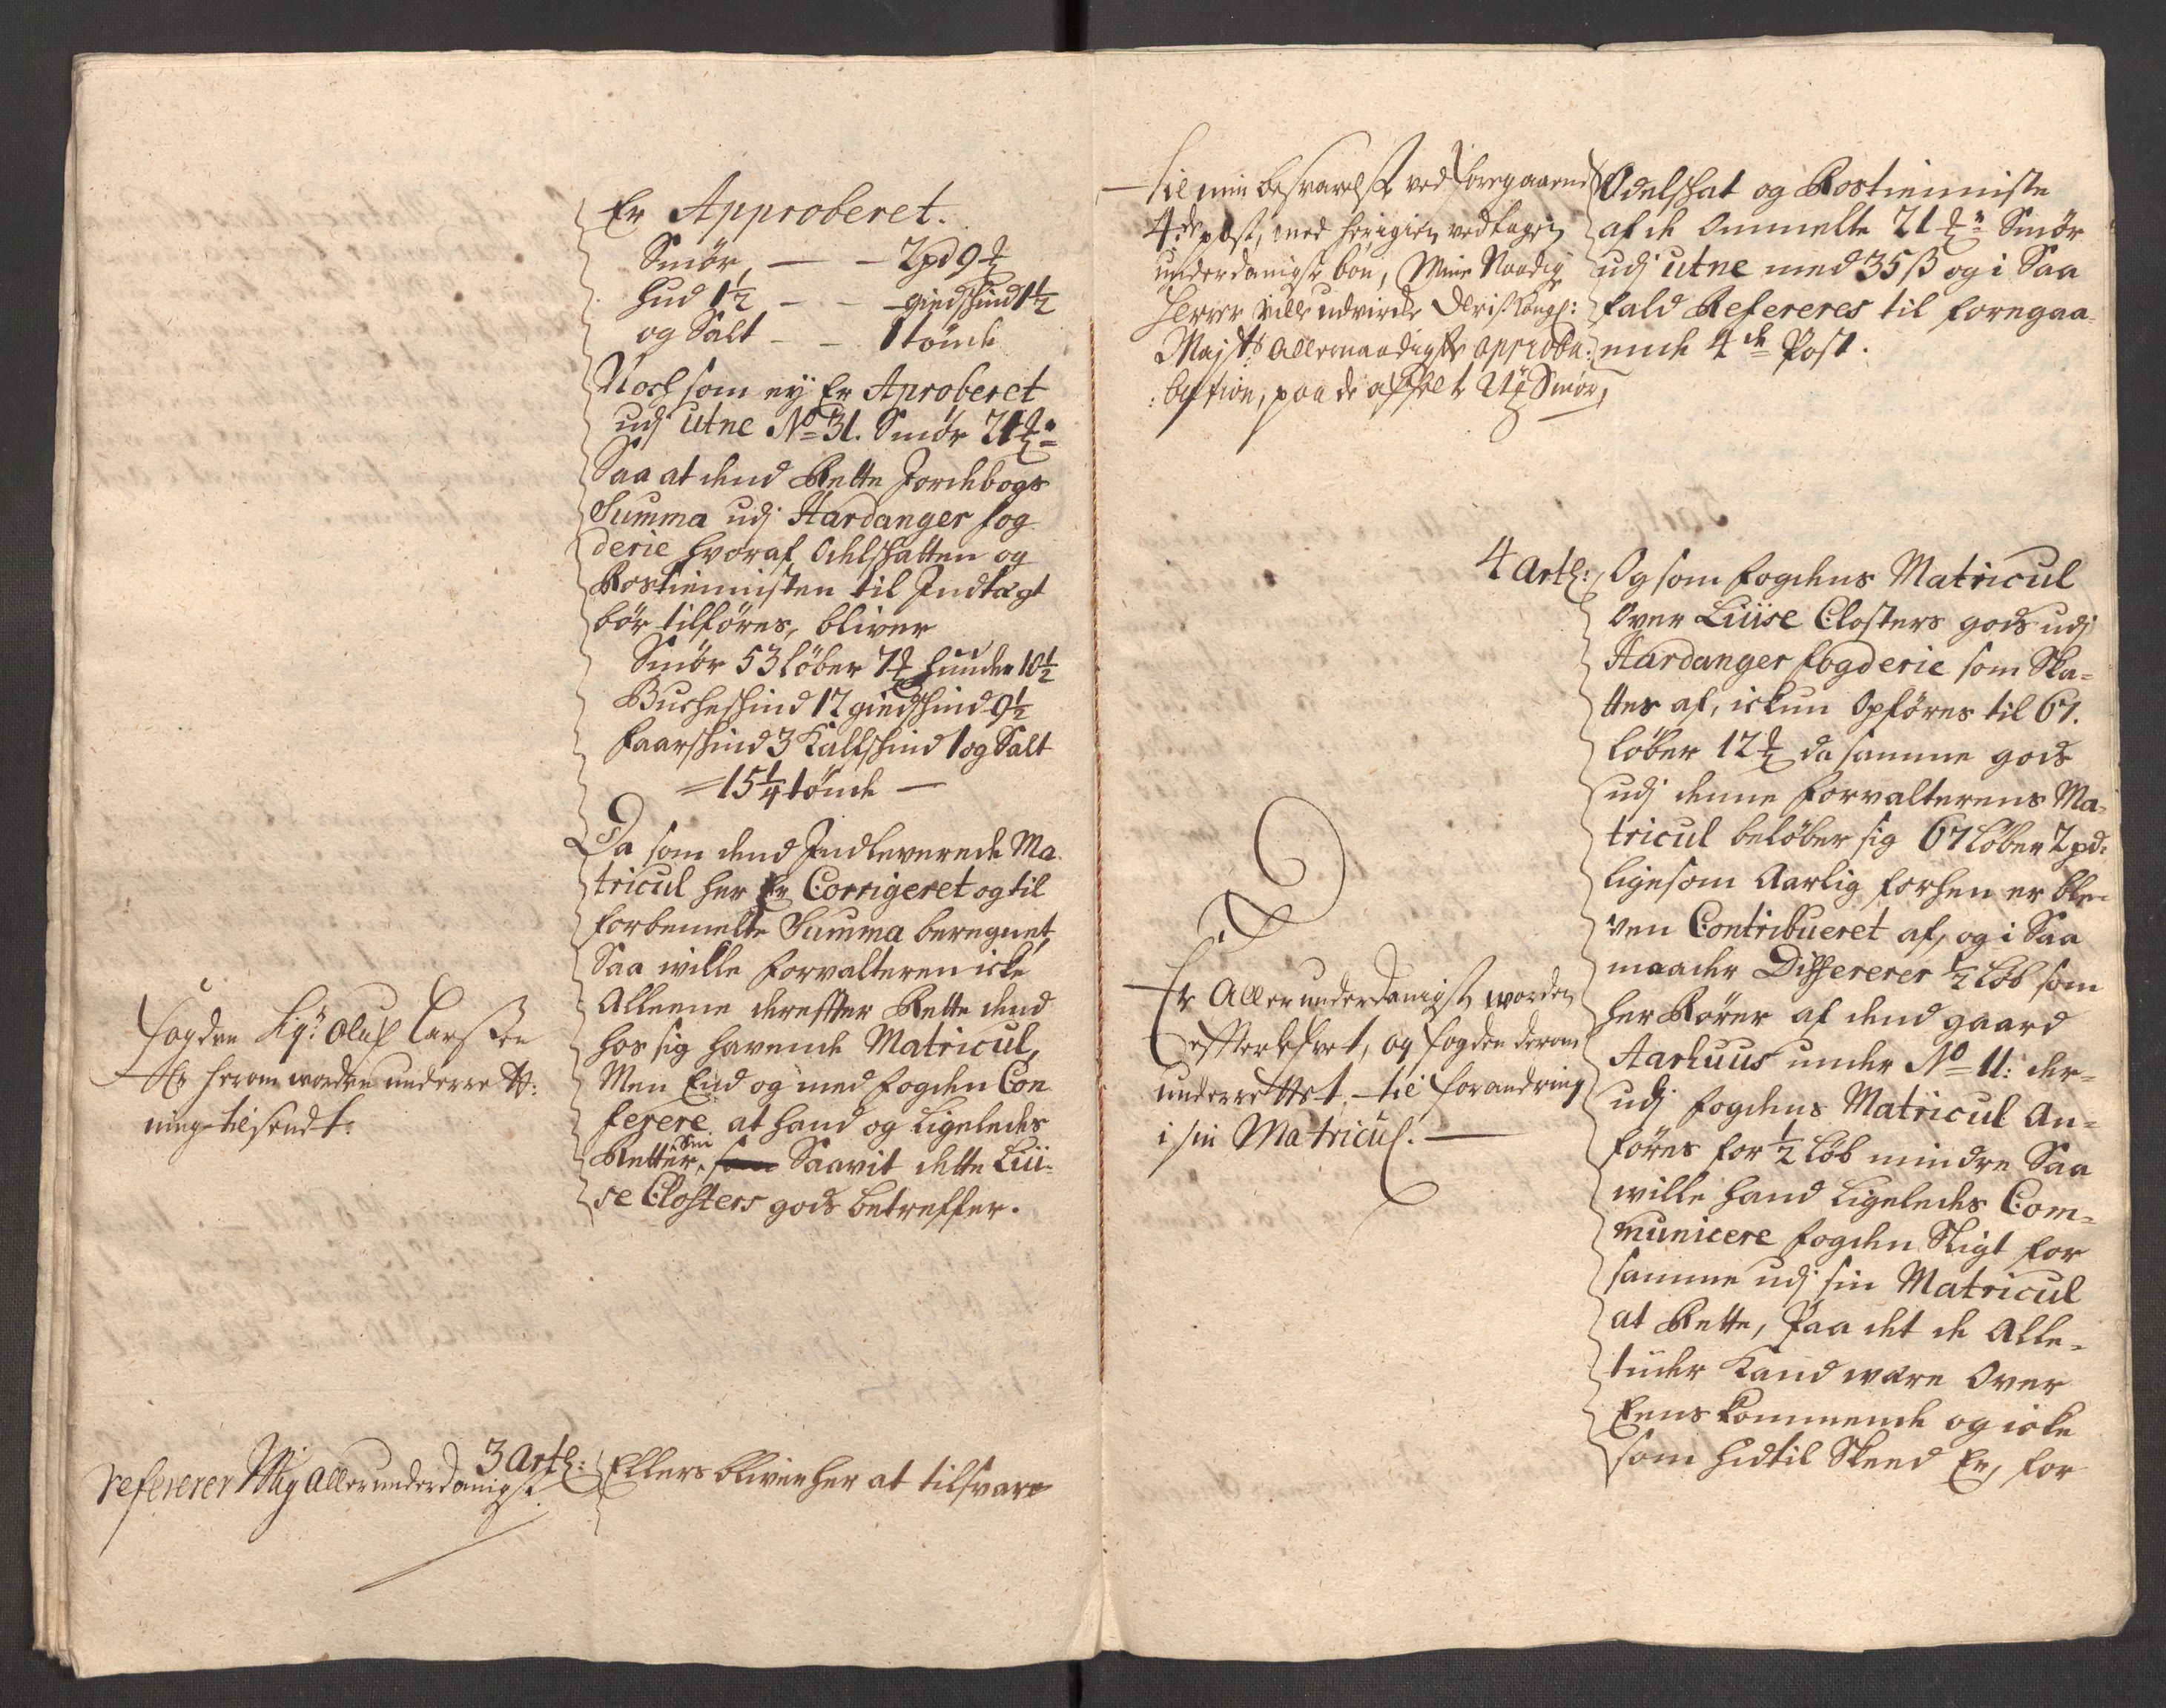 Er Approberet.
Smør, — — 2 pd 9 ℔
Hud 1½ — — giedschind 1½
og Salt — — 1 tönde
Noch som ey Er Aproberet
udj Utne No 31. Smör 21 ℔
Saa at dend Rette Jordebogs
Summa udj Hardanger fog
derie hvoraf Odelschatten og
Rostienisten til Indtægt
bör tilföres, bliver
Smör 53 löber 7 ℔ Huuder 10½
Bucheschind 12 giedschind 9½
faarschind 3 Kalfschind 1 og Salt
= 15¼ tönde —
Da som dend Indleverede Ma
tricul her Er Corrigeret og til
forbemelte Summa beregnet,
Saa wille forvalteren icke
Alleene dereffter Rette dend
hos sig havende Matricul,
Men End og med fogden Con
ferere at hand og ligeledes
Retter, Sin Saavit dette Lüi-
se Closters gods betreffer.
fogden Sigr Oluf Larsßen
Er herom worden underrett:
ning tilsendt.
3 Art:
refererer Mig Allerunderdanigst
Ellers bliver her at tilsvare
til min besvarelse ved foregaaende
4de post, med herigien vedtagen
underdanigst bön, Mine Naadige
Herrer ville udvirke Deris Kongl:
Majtts Allernaadigste approba:
:bation, paa de affelt 21 ℔ Smör,
Odelschat og Rostienniste
af de Ommelte 21 ℔ Smör
udj Utne med 35 ß og i Saa
fald Refereres til forngaa
ende 4de Post.
4 Art:
Og som fogdens Matricul
Over Lüüse Closters gods udj
Hardanger fogderie som Ska-
ttes af, ickun Opföres til 67.
löber 12 ℔ da samme gods
udj denne forvalterens Ma-
tricul belöber sig 67 löber 2 pd:
ligesom Aarlig forhen er ble-
ven Contribueret af, og i Saa
maader Differerer ½ löb som
her Rörer af dend gaard
Aarhuus under No 11: der-
udj fogdens Matricul An-
föres for ½ löb mindre Saa
wille hand Ligeledes Com-
municere fogden Sligt for
samme udj sin Matricul
at Rette, Paa det de Alle-
tiider Kand wære Over
Eens kommende og icke
som hidtil Skeed Er, for
Er Allerunderdanigst worden
effterlefvet, og fogden derom
underrettet, til forandring
i sin Matricul. —